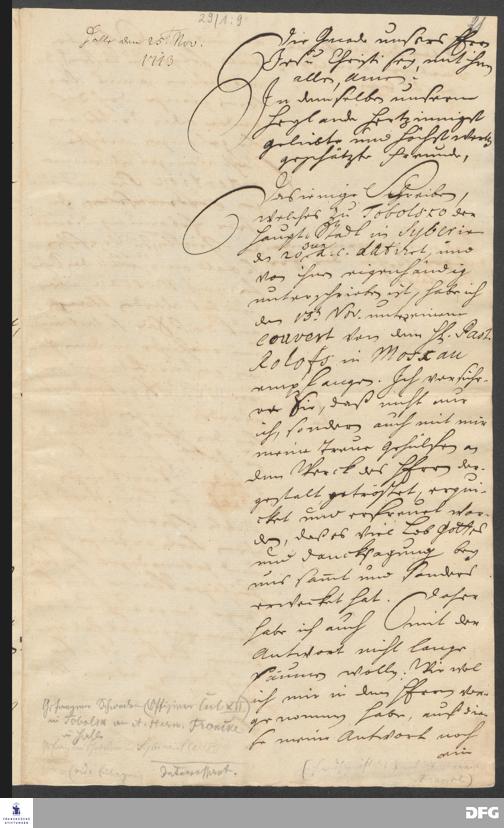 29/1:9
Halle den 25. Nov.
1713
Die Gnade unsers Herrn
Jesu Christi sey mit ihnen
allen, Amen!
In demselben unserm
Heylande Hertzinnigst
geliebte und höchst werth
geschätzte Freunde,
Dasjenige Schreiben,
welches zu Tobolsco der
Haupt-Stadt in Syberien
d. 20 a.c. datiret, und
von ihnen eigenhändig
unterschrieben ist, habe ich
den 13. Nov. unter einem
couvert von dem H. Past.
Rolofs in Moscau
empfangen. Ich versiche-
re Sie, daß nicht nur
ich, sondern auch mit mir
meine Treue Gehülfen an
dem Werck des Herrn der-
gestalt getröstet, erqui-
cket und erfreuet wor-
den, daß es viel Lob Gottes
und Dancksagung bey
uns sammt und sonders
erwecket hat. Daher
habe ich auch mit der
Antwort nicht lange
säumen wollen; Wie wol
ich mir in dem Herrn vor-
genommen habe, auf die-
se meine Antwort noch
ein
Gefangene Schweden (Offiziere Carl XII)
in Tobolsk an A. Herm. Francke
in Halle
DFG